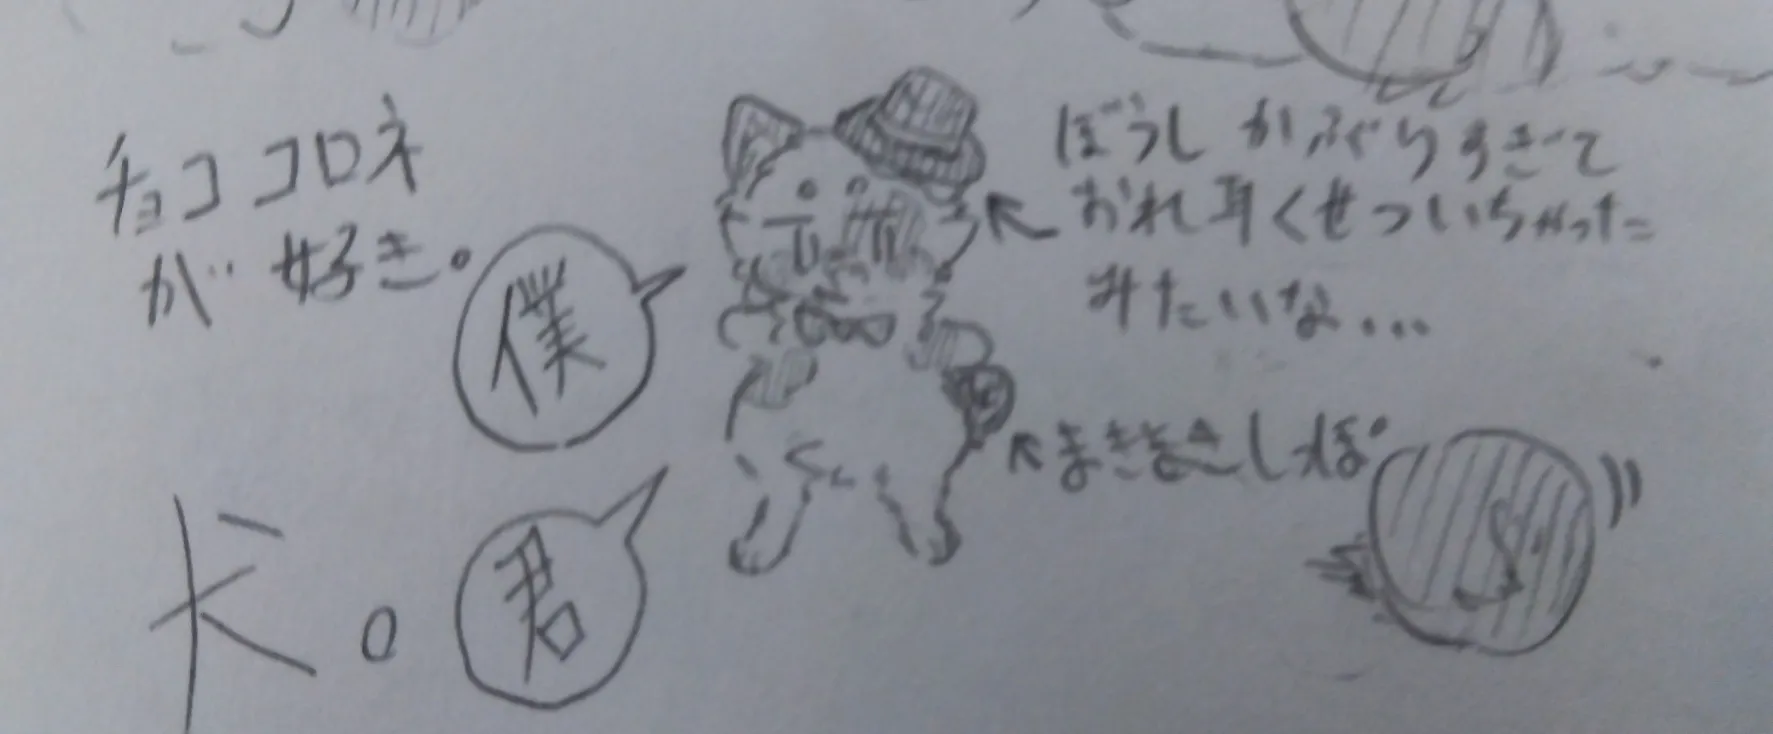 チョココロネ
が好き。
僕
ぼうしかぶりすぎて
おれ耳くせついちゃった
みたいな...
まきまきしっぽ。
犬。
君